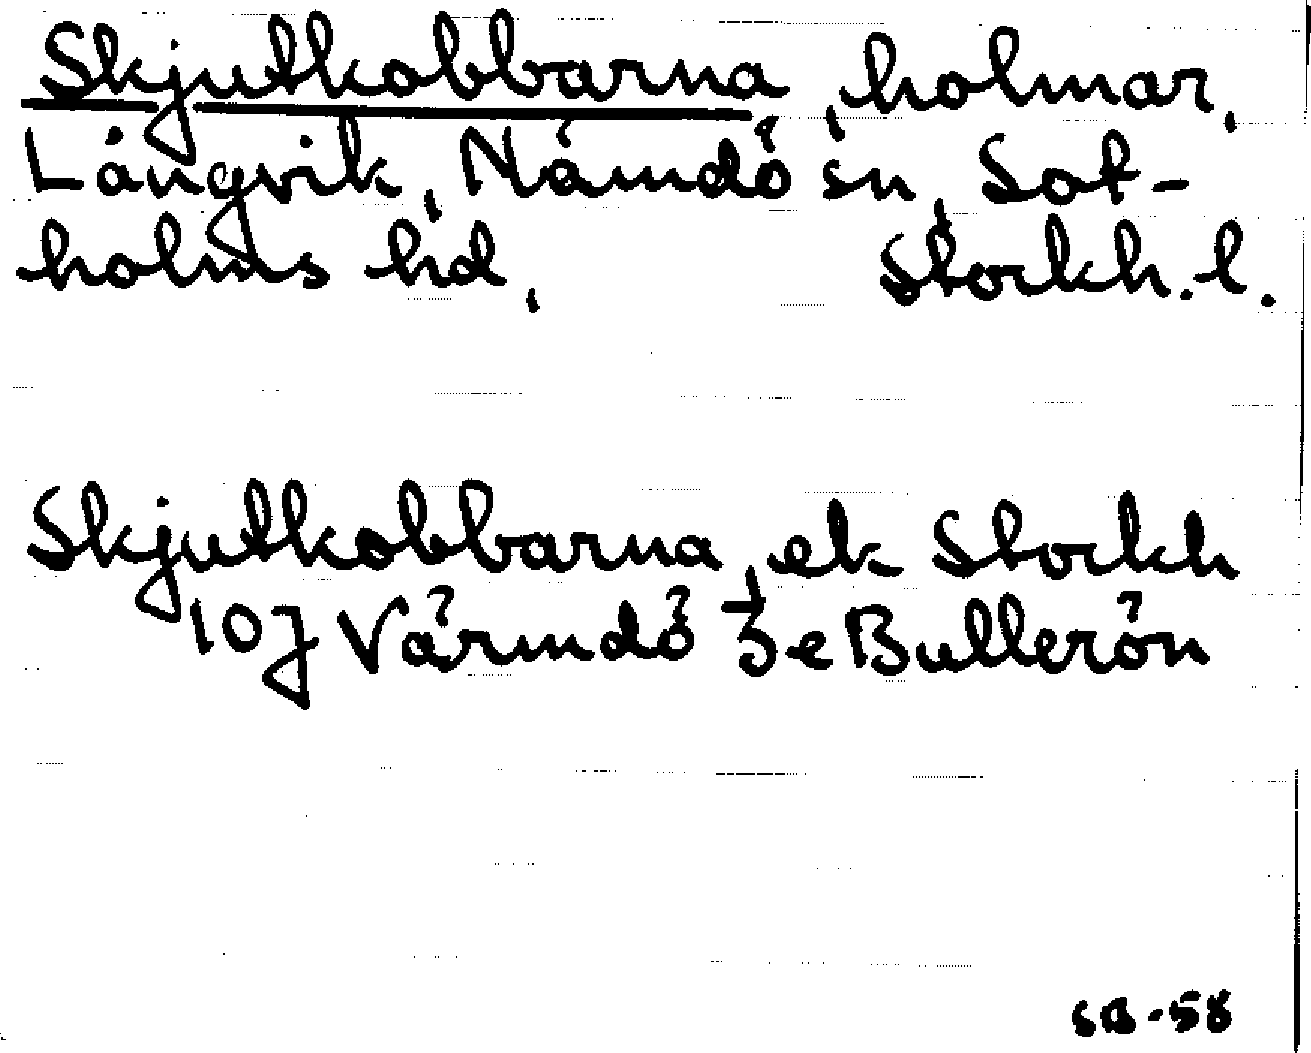 Skjutkobbarna, holmar,
Långvik, Nämdö sn, Sot-
holms hd, Stockh. l.
Skjutkobbarna, ek Stockh
10J Värmdö 3e Bullerön
SB-58